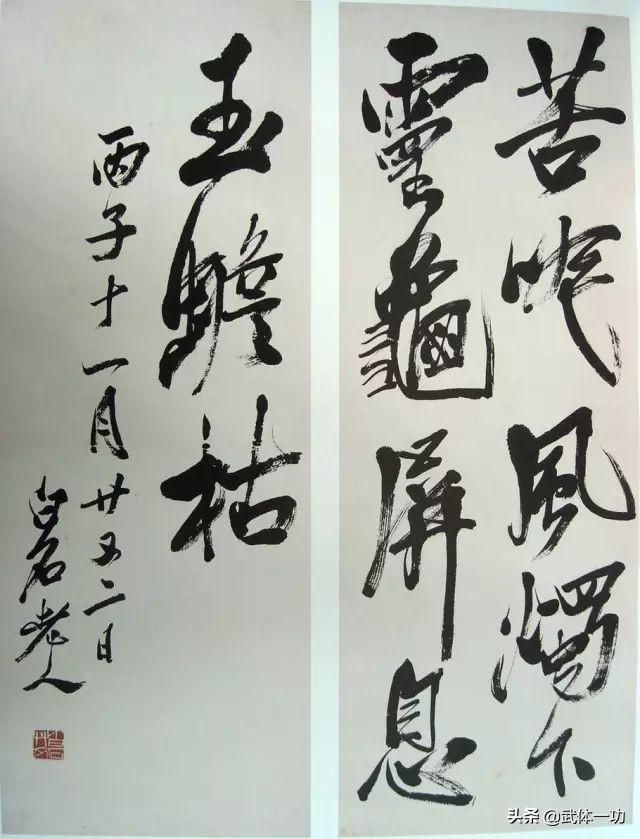 苦吟風燭下
靈龜屏息
玉蟾枯
丙子十一月廿又二日
白石老人
头条 @武体一功